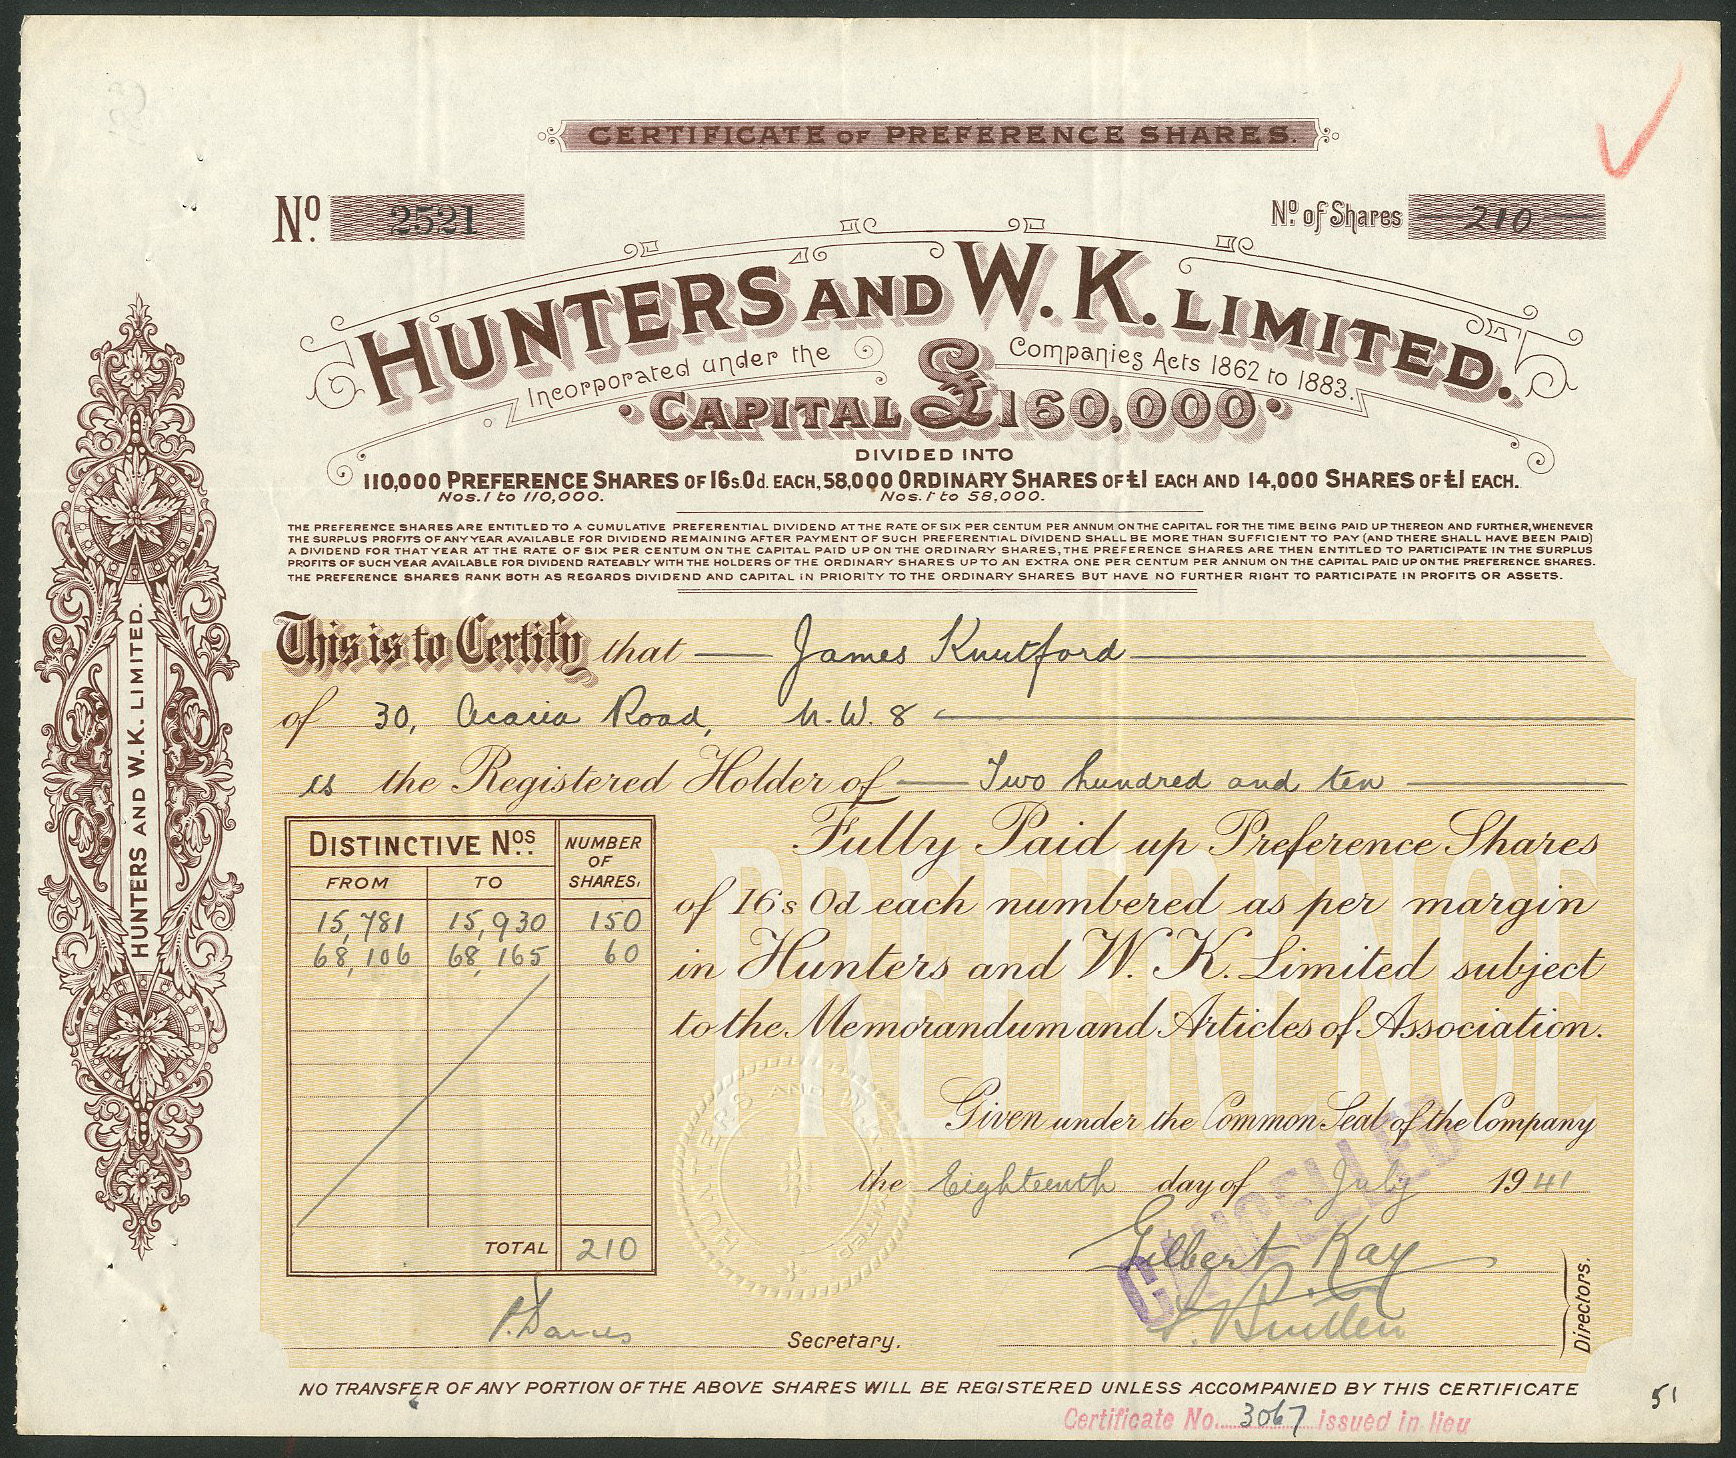 CERTIFICATE OF PREFERENCE SHARES.
No. 2521
No. of Shares 210
HUNTERS AND W. K. LIMITED.
Incorporated under the Companies Acts 1862 to 1883.
CAPITAL £160,000
DIVIDED INTO
110,000 PREFERENCE SHARES OF 16s.0d. EACH, 58,000 ORDINARY SHARES OF £1 EACH AND 14,000 SHARES OF £1 EACH.
Nos. 1 to 110,000. Nos. 1 to 58,000.
THE PREFERENCE SHARES ARE ENTITLED TO A CUMULATIVE PREFERENTIAL DIVIDEND AT THE RATE OF SIX PER CENTUM PER ANNUM ON THE CAPITAL FOR THE TIME BEING PAID UP THEREON AND FURTHER, WHENEVER
THE SURPLUS PROFITS OF ANY YEAR AVAILABLE FOR DIVIDEND REMAINING AFTER PAYMENT OF SUCH PREFERENTIAL DIVIDEND SHALL BE MORE THAN SUFFICIENT TO PAY (AND THERE SHALL HAVE BEEN PAID)
A DIVIDEND FOR THAT YEAR AT THE RATE OF SIX PER CENTUM ON THE CAPITAL PAID UP ON THE ORDINARY SHARES, THE PREFERENCE SHARES ARE THEN ENTITLED TO PARTICIPATE IN THE SURPLUS
PROFITS OF SUCH YEAR AVAILABLE FOR DIVIDEND RATEABLY WITH THE HOLDERS OF THE ORDINARY SHARES UP TO AN EXTRA ONE PER CENTUM PER ANNUM ON THE CAPITAL PAID UP ON THE PREFERENCE SHARES.
THE PREFERENCE SHARES RANK BOTH AS REGARDS DIVIDEND AND CAPITAL IN PRIORITY TO THE ORDINARY SHARES BUT HAVE NO FURTHER RIGHT TO PARTICIPATE IN PROFITS OR ASSETS.
HUNTERS AND W. K. LIMITED.
This is to Certify that James Knutford
of 30, Acacia Road, N.W. 8
is the Registered Holder of Two hundred and ten
Fully Paid up Preference Shares
of 16s 0d each numbered as per margin
in Hunters and W. K. Limited subject
to the Memorandum and Articles of Association.
PREFERENCE
DISTINCTIVE Nos. NUMBER OF SHARES.
FROM TO
15,781 15,930 150
68,106 68,165 60
TOTAL 210
Given under the Common Seal of the Company
the Eighteenth day of July 1941
HUNTERS AND W.K. LIMITED
CANCELLED
Gilbert Kay
Directors.
P. Davies Secretary.
NO TRANSFER OF ANY PORTION OF THE ABOVE SHARES WILL BE REGISTERED UNLESS ACCOMPANIED BY THIS CERTIFICATE
51
Certificate No. 3067 issued in lieu